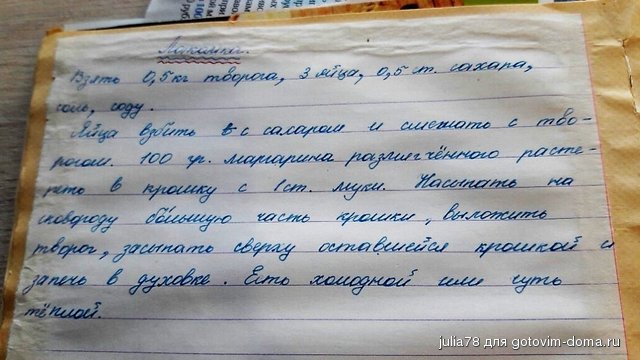 Лакомка.
Взять 0,5 кг творога, 3 яйца, 0,5 ст. сахара,
соль, соду.
Яйца взбить с сахаром и смешать с тво-
рогом. 100 гр. маргарина размягчённого расте-
реть в крошку с 1 ст. муки. Насыпать на
сковороду бо́льшую часть крошки, выложить
творог, засыпать сверху оставшейся крошкой и
запечь в духовке. Есть холодной или чуть
тёплой.
julia78 для gotovim-doma.ru